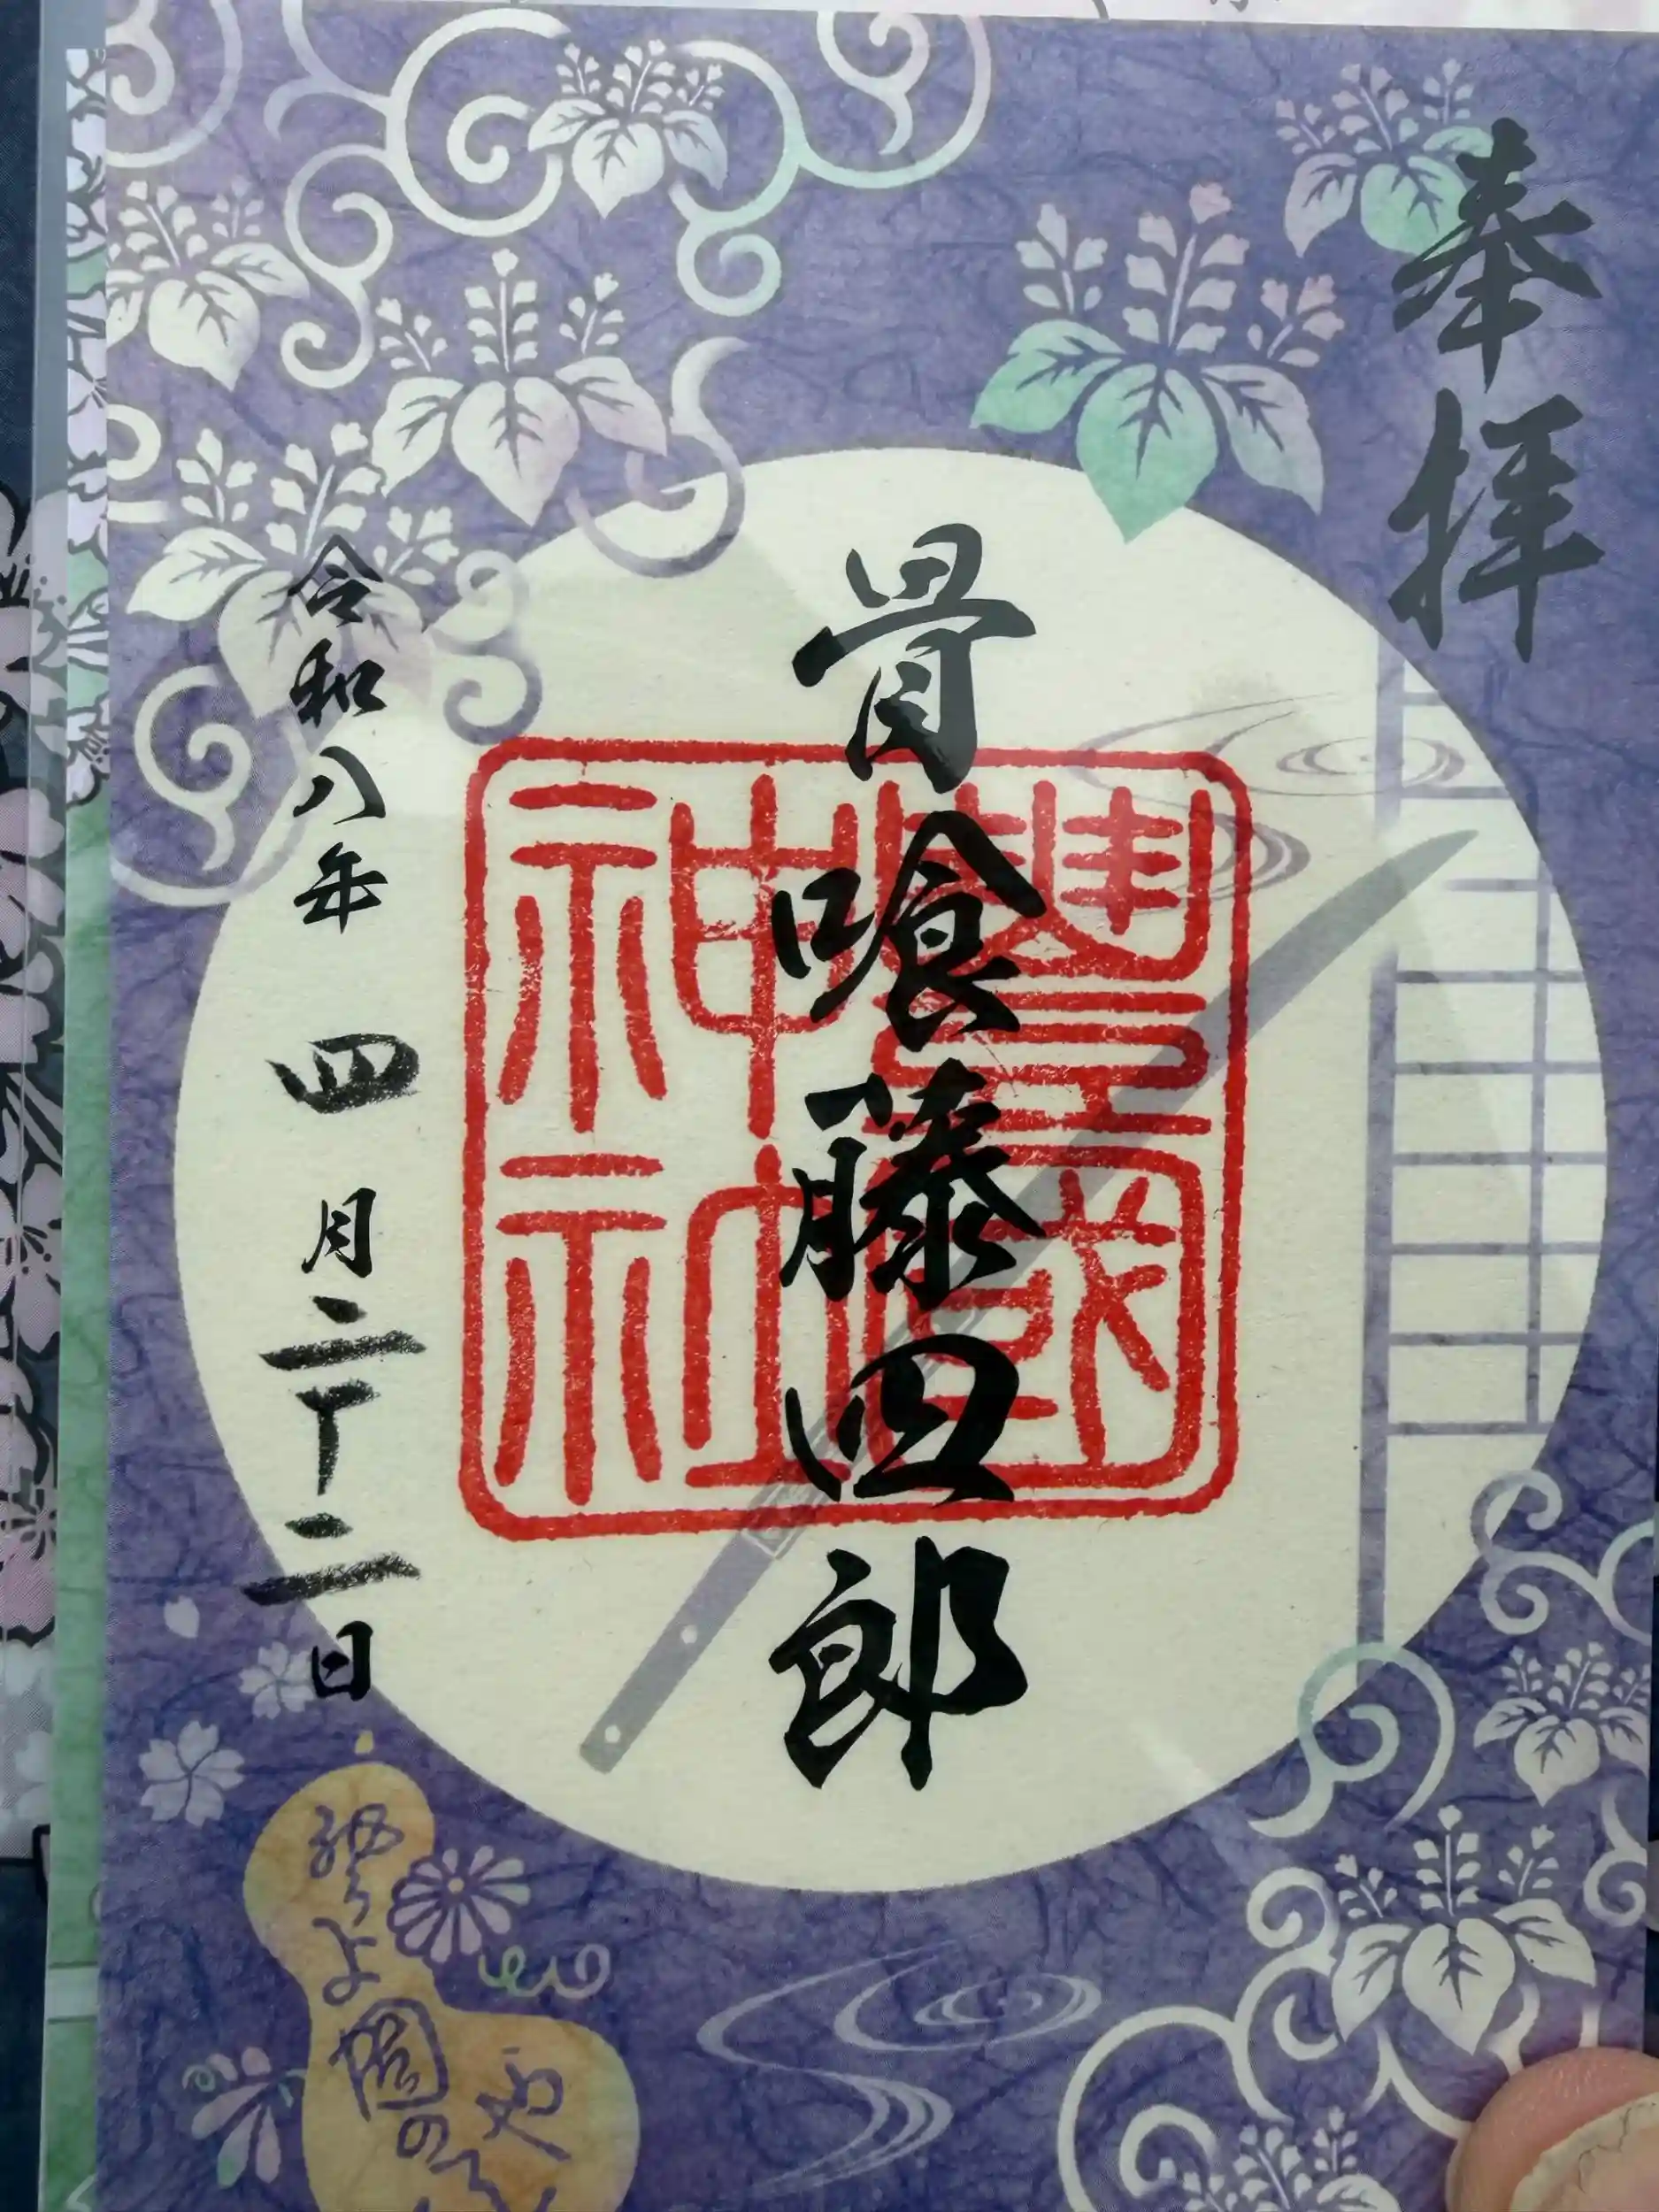 奉拝
骨喰藤四郎
豊國神社
令和八年 四月二十二日